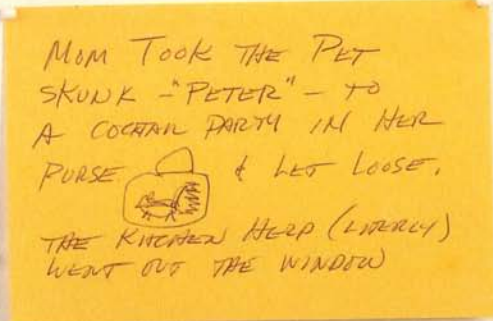 MOM TOOK THE PET
SKUNK - "PETER" - TO
A COCKTAIL PARTY IN HER
PURSE & LET LOOSE.
THE KITCHEN HELP (LITERLY)
WENT OUT THE WINDOW